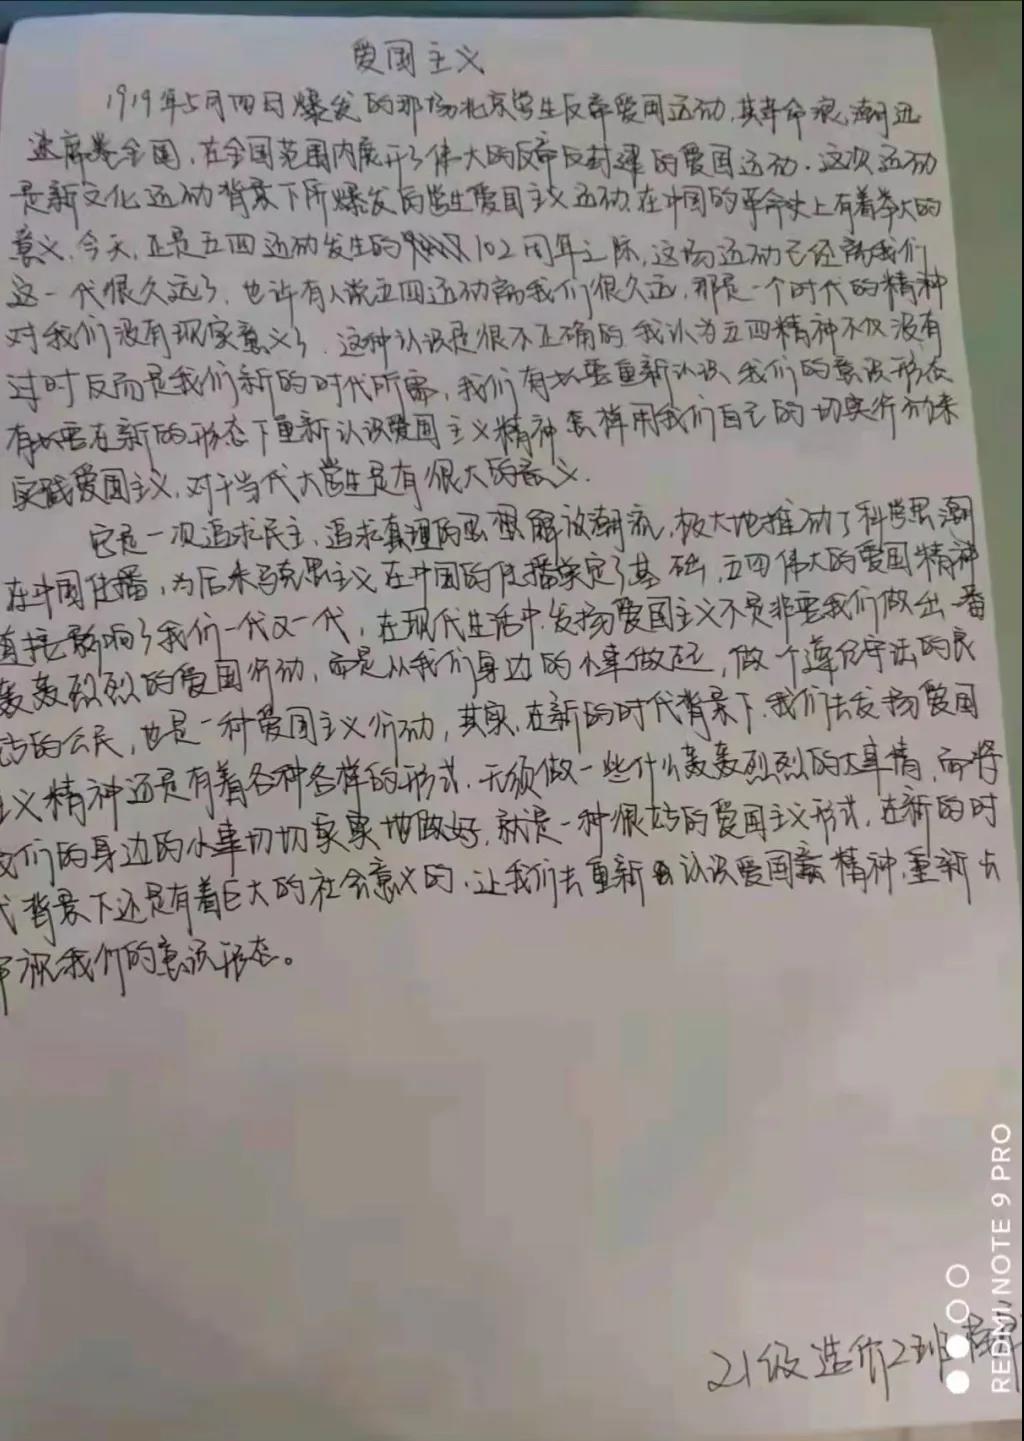 爱国主义
1919年5月四日爆发的那场北京学生反帝爱国运动,其革命浪潮迅
速席卷全国,在全国范围内展开了伟大的反帝反封建的爱国运动.这次运动
是新文化运动背景下所爆发的学生爱国主义运动,在中国的革命史上有着举大的
意义,今天,正是五四运动发生的102周年之际,这场运动已经离我们
这一代很久远了,也许有人说五四运动离我们很久远,那是一个时代的精神
对我们没有现实意义了.这种认识是很不正确的,我认为五四精神不仅没有
过时反而是我们新的时代所需,我们有必要重新认识我们的意识形态
有必要在新的形态下重新认识爱国主义精神怎样用我们自己的切实行动来
实践爱国主义,对于当代大学生是有很大的意义.
它是一次追求民主,追求真理的思想解放潮流,极大地推动了科学思潮
在中国传播,为后来马克思主义在中国的传播奠定了基础,五四伟大的爱国精神
直接影响了我们一代又一代,在现代生活中,发扬爱国主义不是非要我们做出一番
轰轰烈烈的爱国行动,而是从我们身边的小事做起,做个遵纪守法的良
好的公民,也是一种爱国主义行动,其实,在新的时代背景下,我们去发扬爱国
主义精神还是有着各种各样的形式.无须做一些什么轰轰烈烈的大事情,而将
我们的身边的小事切切实实地做好,就是一种很好的爱国主义形式,在新的时
代背景下还是有着巨大的社会意义的.让我们去重新认识爱国精神,重新
审视我们的意识形态。
21级造价2班
REDMI NOTE 9 PRO